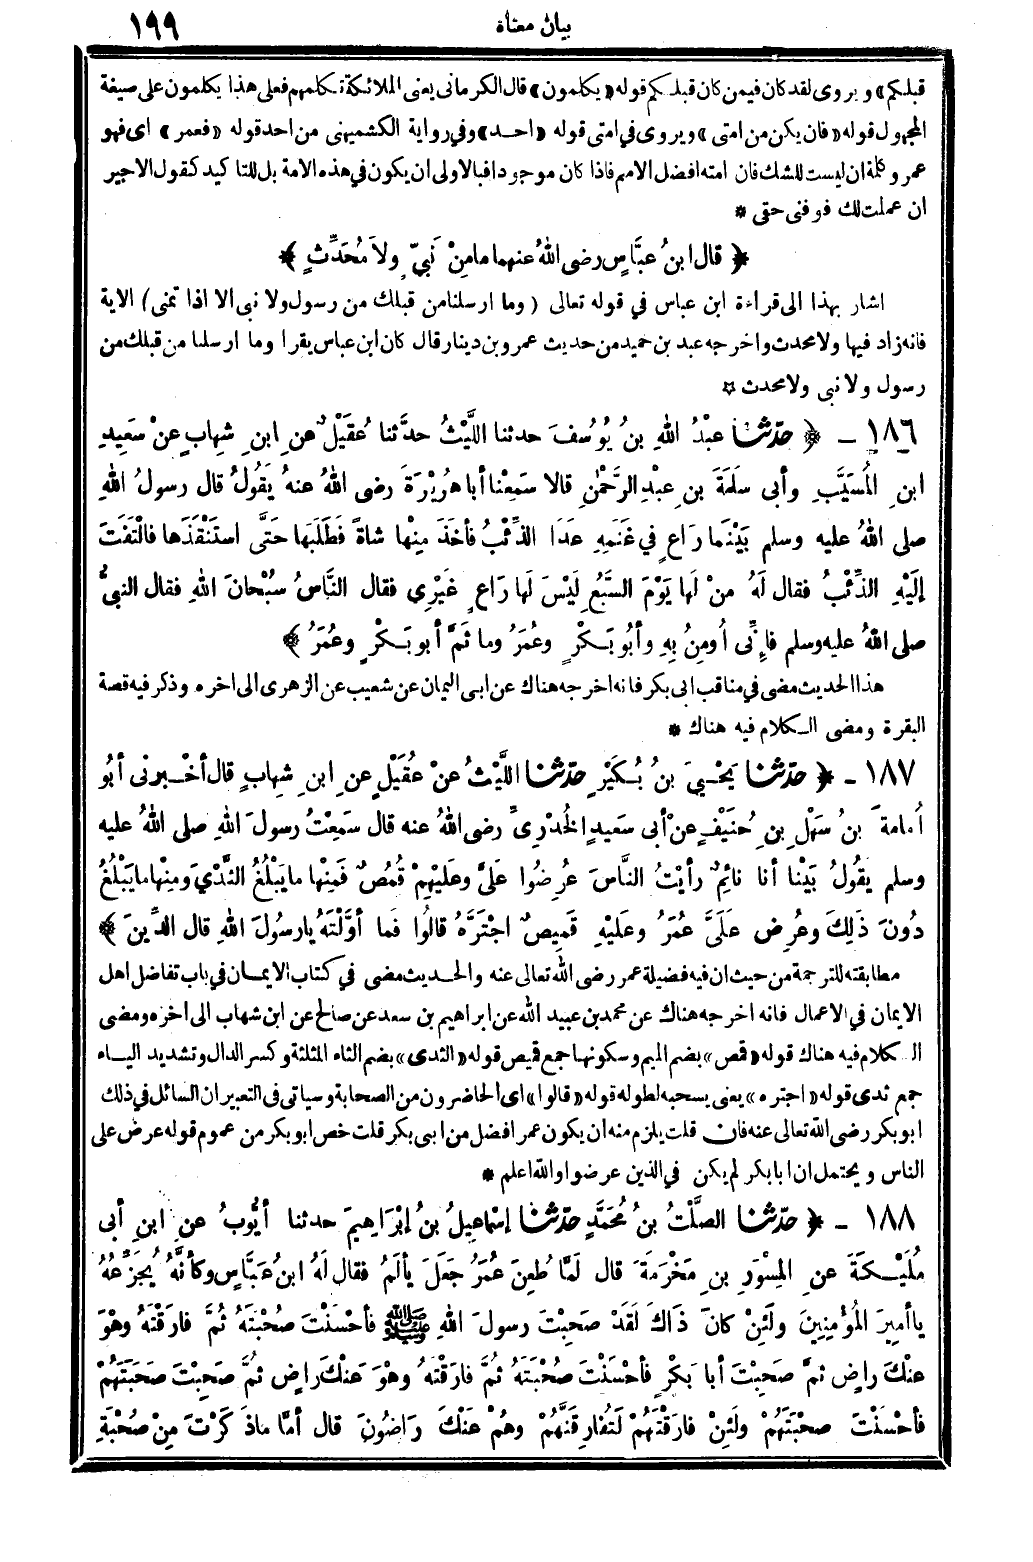 بيان معناه ١٩٩
قبلكم» ويروى لقد كان فيمن كان قبلكم قوله «يكلمون» قال الكرمانى يعنى الملائكة تكلمهم فعلى هذا يكلمون على صيغة
المجهول قوله «فان يكن من امتى» ويروى فى امتى قوله «احد» وفي رواية الكشميهنى من احد قوله «فعمر» اى فهو
عمر وكلمة ان ليست للشك فان امته افضل الامم فاذا كان موجودا فبالاولى ان يكون في هذه الامة بل للتاكيد كقول الاجير
ان عملت لك فوفنى حقى *
﴿ قال ابنُ عبَّاسٍ رضى اللهُ عنهما ما مِنْ نَبِيٍّ ولاَ مُحَدَّثٍ ﴾
اشار بهذا الى قراءة ابن عباس في قوله تعالى ( وما ارسلنا من قبلك من رسول ولا نبى الا اذا تمنى ) الاية
فانه زاد فيها ولا محدث واخرجه عبد بن حميد من حديث عمرو بن دينار قال كان ابن عباس يقرا وما ارسلنا من قبلك من
رسول ولا نبى ولا محدث *
١٨٦ - ﴿ حدّثنا عبْدُ اللهِ بنُ يُوُسُفَ حدثنا اللَّيْثُ حدَّثنا عُقَيْلٌ عنِ ابنِ شِهابٍ عنْ سَعِيدِ
ابنِ المُسَيَّبِ وأبى سلَمَةَ بنِ عبْدِ الرَّحْمٰنِ قالا سَمِعْنا أبا هرِيْرَةَ رضى اللهُ عنهُ يَقُولُ قال رسولُ اللهِ
صلى اللهُ عليه وسلم بَيْنَما رَاعٍ في غَنَمِهِ عَدَا الذِّئْبُ فأخَذَ مِنْها شاةً فَطَلَبَها حَتَّى استَنْقَذَها فالْتَفَتَ
إلَيْهِ الذِّئْبُ فقال لَهُ منْ لَها يَوْمَ السَّبُعِ لَيْسَ لَها رَاعٍ غَيْرِى فقال النَّاسُ سُبْحانَ اللهِ فقال النبىُّ
صلى اللهُ عليه وسلم فإنِّى أُومِنُ بِهِ وأبُو بَكْرٍ وعُمَرُ وما ثَمَّ أبو بَكْرٍ وعُمَرُ ﴾
هذا الحديث مضى في مناقب ابى بكر فانه اخرجه هناك عن ابى اليمان عن شعيب عن الزهرى الى اخره وذكر فيه قصة
البقرة ومضى الكلام فيه هناك *
١٨٧ - ﴿ حدّثنا يَحْيَى بنُ بُكَيْرٍ حدّثنا اللَّيْثُ عنْ عُقَيْلٍ عنِ ابنِ شِهابٍ قال أخْبرنى أبُو
أُمامةَ بنُ سَهْلِ بنِ حُنَيْفٍ عنْ أبى سَعِيدٍ الخدْرِىِّ رضى اللهُ عنه قال سَمِعْتُ رسولَ اللهِ صلى اللهُ عليه
وسلم يَقُولُ بَيْنا أنا نائِمٌ رأيْتُ النَّاسَ عُرِضُوا عَلَىَّ وعلَيْهِمْ قُمُصٌ فَمِنْها ما يَبْلُغُ الثَّدْىَ ومِنْها ما يَبْلُغُ
دُونَ ذَلِكَ وعُرِضَ علَىَّ عُمَرُ وعلَيْهِ قَمِيصٌ اجْتَرَّهُ قالُوا فَما أوَّلْتَهُ يا رسُولَ اللهِ قال الدِّينَ ﴾
مطابقته للترجمة من حيث ان فيه فضيلة عمر رضى الله تعالى عنه والحديث مضى في كتاب الايمان في باب تفاضل اهل
الايمان في الاعمال فانه اخرجه هناك عن محمد بن عبيد الله عن ابراهيم بن سعد عن صالح عن ابن شهاب الى اخره ومضى
الكلام فيه هناك قوله «قمص» بضم الميم وسكونها جمع قميص قوله «الثدى» بضم الثاء المثلثة وكسر الدال وتشديد الياء
جمع ثدى قوله «اجتره» يعنى يسحبه لطوله قوله «قالوا» اى الحاضرون من الصحابة وسياتى فى التعبير ان السائل في ذلك
ابو بكر رضى الله تعالى عنه فان قلت يلزم منه ان يكون عمر افضل من ابى بكر قلت خص ابو بكر من عموم قوله عرض على
الناس ويحتمل ان ابا بكر لم يكن في الذين عرضوا والله اعلم *
١٨٨ - ﴿ حدّثنا الصَّلْتُ بنُ مُحَمَّدٍ حدّثنا إسْماعِيلُ بنُ إبْرَاهِيمَ حدثنا أيُّوبُ عنِ ابنِ أبى
مُلَيْكَةَ عنِ المِسْوَرِ بنِ مَخْرَمَةَ قال لَمَّا طُعِنَ عُمَرُ جَعَلَ يألَمُ فقال لَهُ ابنُ عَبَّاسٍ وكأنَّهُ يُجَزِّعُهُ
يا أمِيرَ المُؤْمِنِينَ ولَئِنْ كانَ ذَاكَ لقَدْ صَحِبْتَ رسولَ اللهِ ﷺ فأحْسَنْتَ صُحْبَتَهُ ثُمَّ فارَقْتَهُ وهْوَ
عنْكَ رَاضٍ ثمَّ صَحِبْتَ أبا بَكْرٍ فأحْسَنْتَ صُحْبَتَهُ ثُمَّ فارَقْتَهُ وهْوَ عَنْكَ رَاضٍ ثُمَّ صَحِبْتَ صَحَبَتَهُمْ
فأحْسَنْتَ صحْبَتَهُمْ ولَئِنْ فارَقْتَهُمْ لَتُفارِقَنَّهُمْ وهُمْ عَنْكَ رَاضُونَ قال أمَّا ما ذَكَرْتَ مِنْ صُحْبَةِ